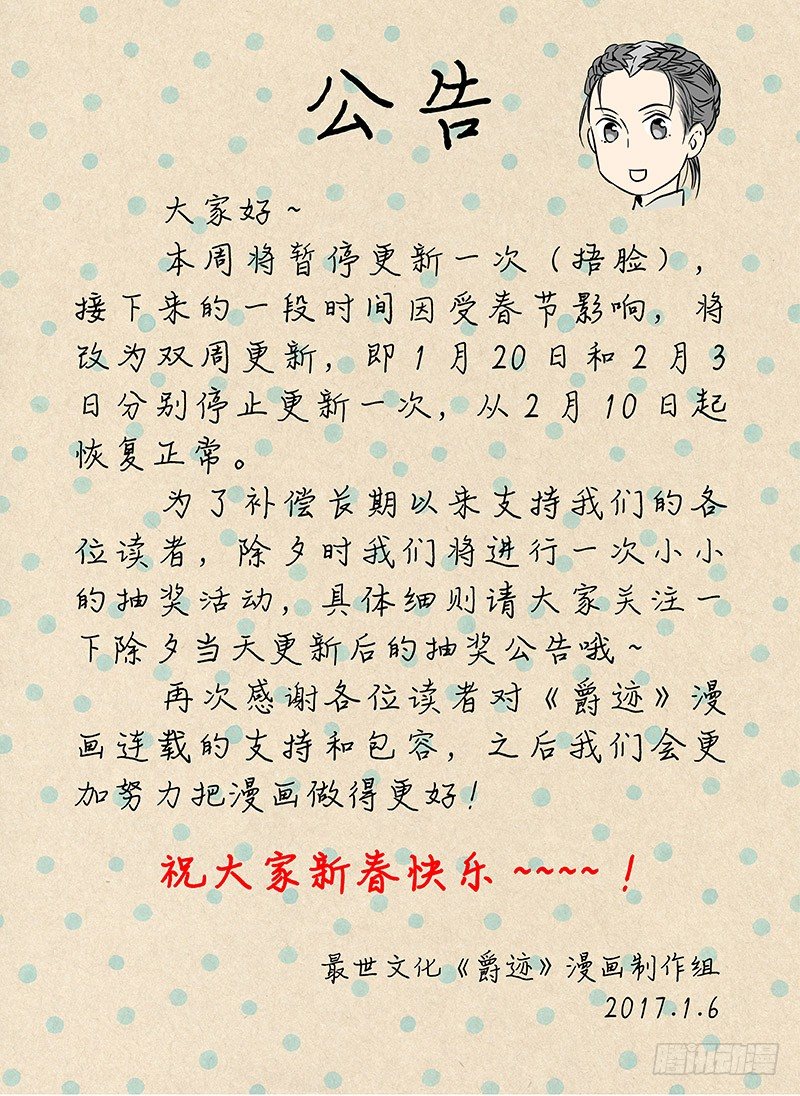 公告
大家好~
本周将暂停更新一次（捂脸），
接下来的一段时间因受春节影响，将
改为双周更新，即1月20日和2月3
日分别停止更新一次，从2月10日起
恢复正常。
为了补偿长期以来支持我们的各
位读者，除夕时我们将进行一次小小
的抽奖活动，具体细则请大家关注一
下除夕当天更新后的抽奖公告哦~
再次感谢各位读者对《爵迹》漫
画连载的支持和包容，之后我们会更
加努力把漫画做得更好！
祝大家新春快乐~~~~！
最世文化《爵迹》漫画制作组
2017.1.6
腾讯动漫